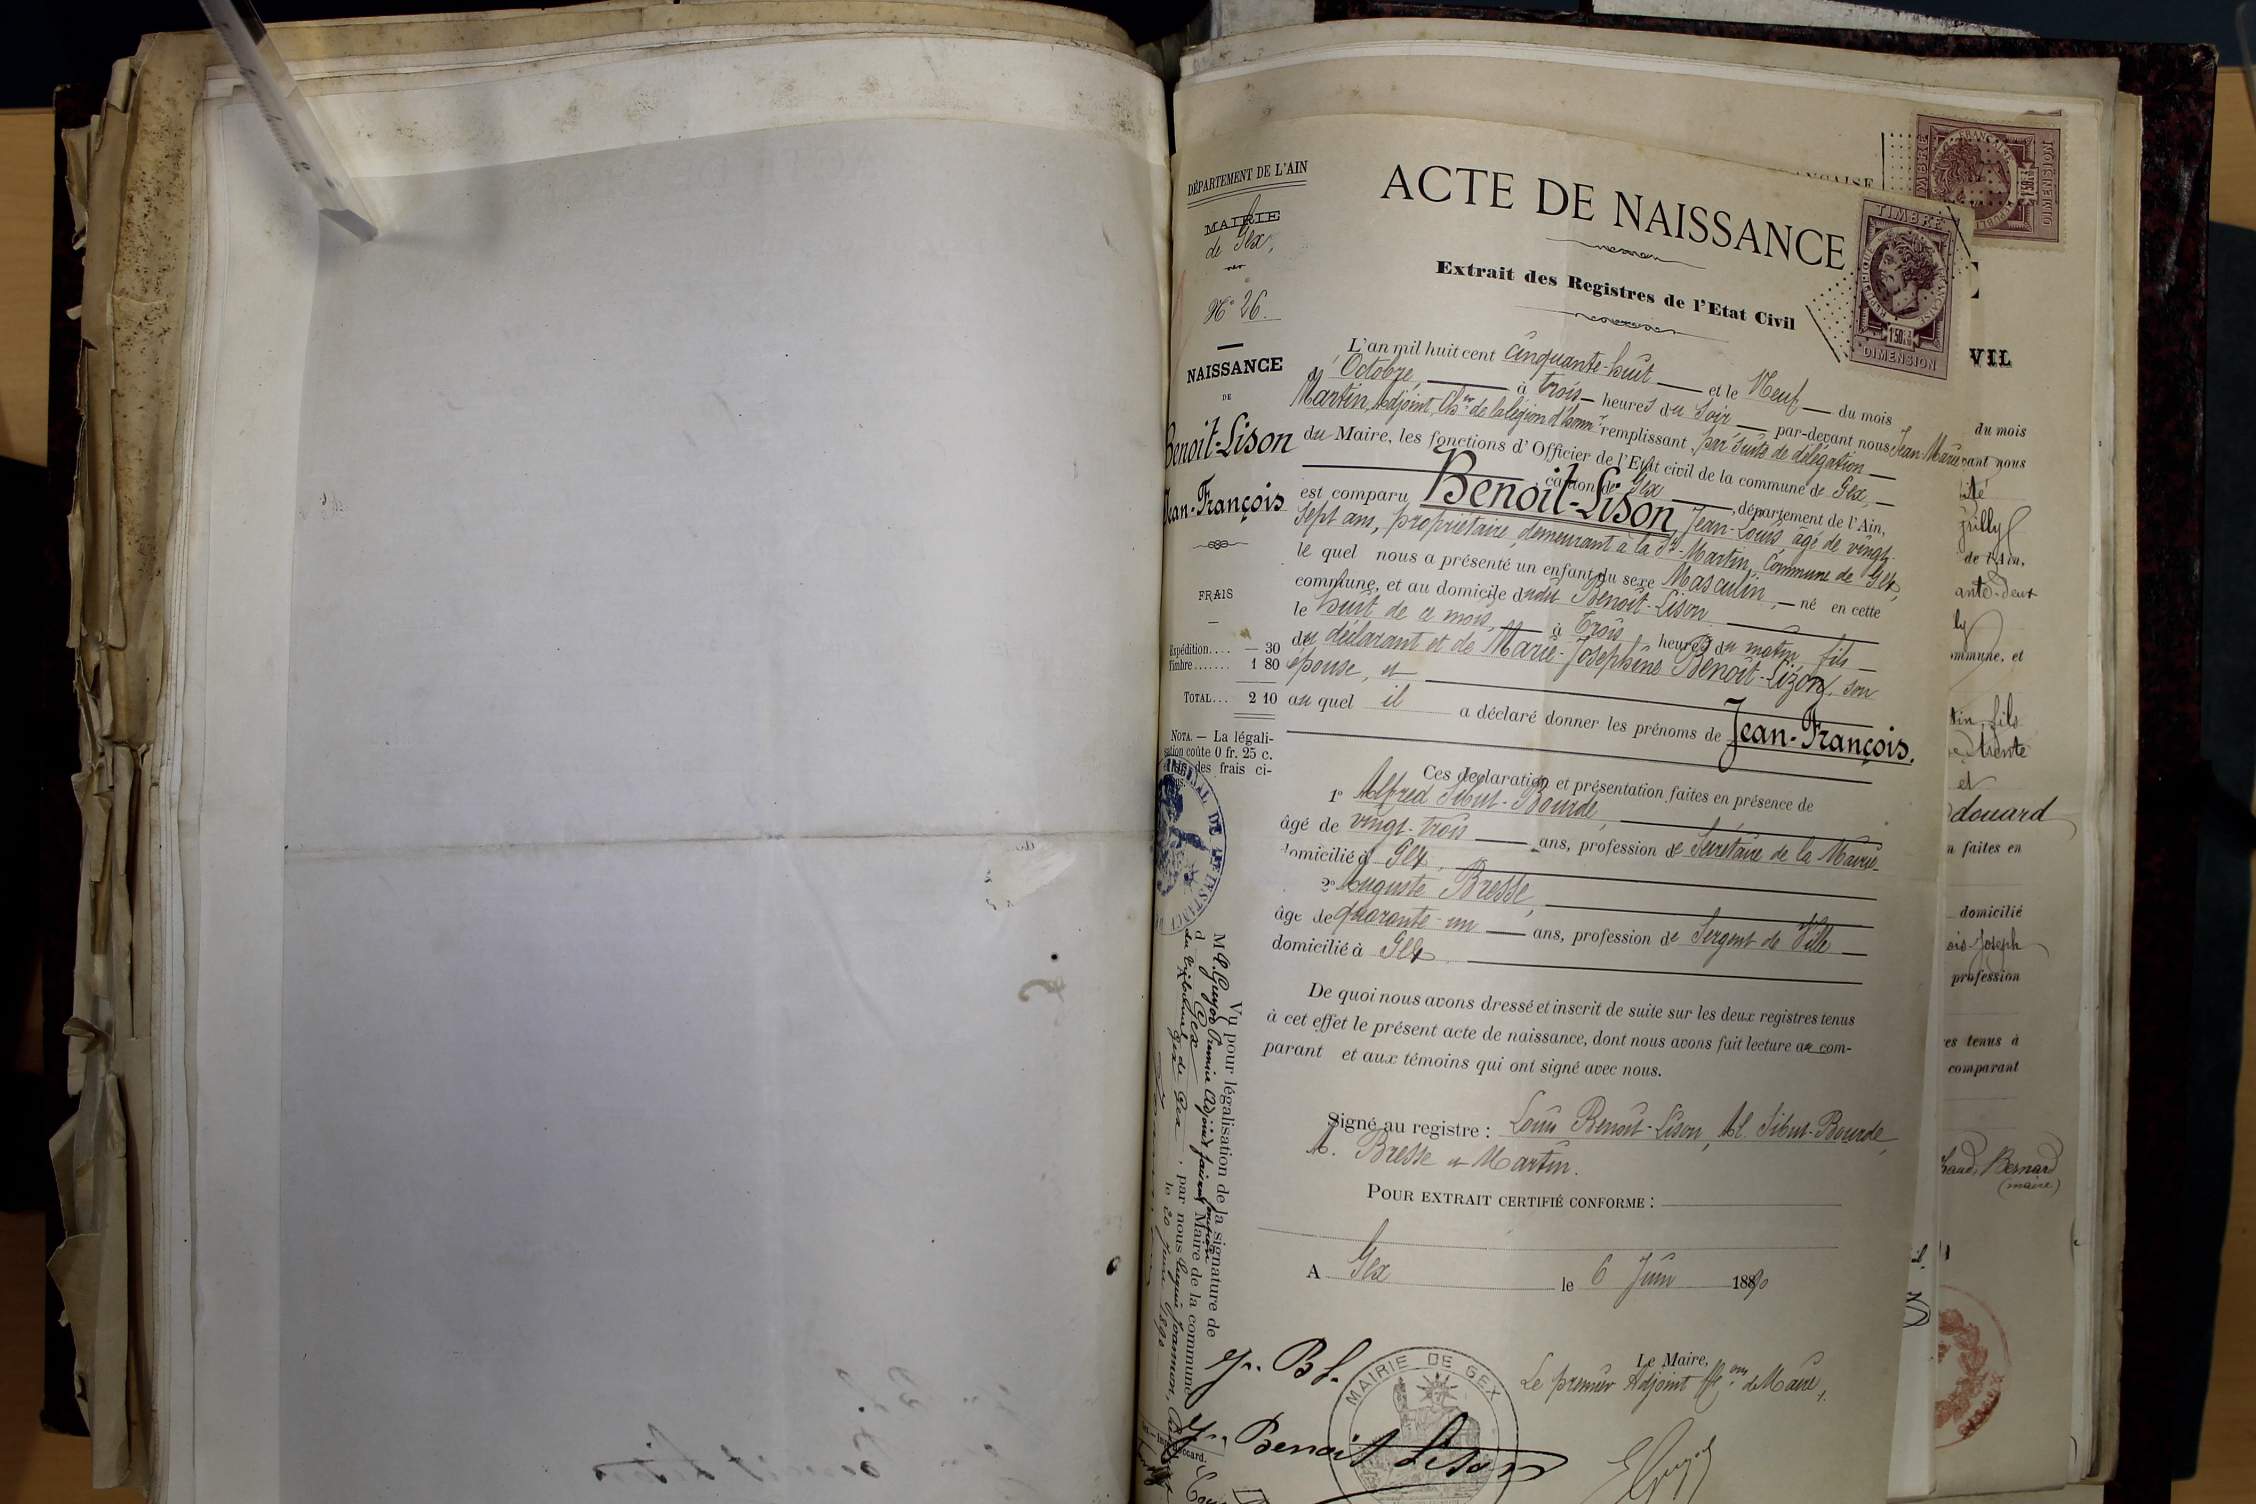 DÉPARTEMENT DE L'AIN
MAIRIE
de Gex,
N° 26.
NAISSANCE
DE
Benoit-Lison
Jean-François
FRAIS
Expédition.... — 30
Timbre....... 1 80
TOTAL... 2 10
NOTA. — La légali-
sation coûte 0 fr. 25 c.
des frais ci-
ACTE DE NAISSANCE
Extrait des Registres de l'Etat Civil
TIMBRE
RÉPUBLIQUE FRANÇAISE
1F50
DIMENSION
L'an mil huit cent cinquante-huit et le Neuf du mois
d'Octobre, à trois heures du soir par-devant nous Jean Marie
Martin, Adjoint, Cher de la légion d'honnr remplissant par suite de délégation
du Maire, les fonctions d'Officier de l'Etat civil de la commune de Gex,
canton de Gex, département de l'Ain,
est comparu Benoit-Lison, Jean-Louis âgé de vingt-
sept ans, propriétaire, demeurant à la St-Martin, Commune de Gex,
le quel nous a présenté un enfant du sexe Masculin, né en cette
commune, et au domicile dudit Benoit-Lison
le huit de ce mois, à Trois heures du matin fils
du déclarant et de Marie-Josephine Benoit-Lizon, son
épouse, et
au quel il a déclaré donner les prénoms de Jean-François.
Ces declaration et présentation faites en présence de
1° Alfred Sibut-Bourde,
âgé de vingt-trois ans, profession de Secrétaire de la Mairie
domicilié à Gex,
2° Auguste Bresse,
âge de quarante-un ans, profession de Sergent de Ville
domicilié à Gex
De quoi nous avons dressé et inscrit de suite sur les deux registres tenus
à cet effet le présent acte de naissance, dont nous avons fait lecture au com-
parant et aux témoins qui ont signé avec nous.
Signé au registre : Louis Benoit-Lison, Al. Sibut-Bourde,
A. Bresse et Martin.
POUR EXTRAIT CERTIFIÉ CONFORME :
A Gex le 6 Juin 1890
Le Maire,
Le premier Adjoint ff.ons de Maire,
MAIRIE DE GEX
Jn. B L.
Jn. Benoit Lison
E Guyod
Vu pour légalisation de la signature de
M E. Guyod Premier Adjoint faisant fonctions
d Gex Maire de la commune
du Tribunal de Gex, par nous
Gex le 20 Juin 1890
TRIBUNAL DE
VIL
du mois
vant nous
de l'Ain,
ante-deux
ly
commune, et
fils
trente
et
douard
n faites en
domicilié
ois-Joseph
profession
es tenus à
comparant
Bernard
(maire)
TIMBRE
DIMENSION